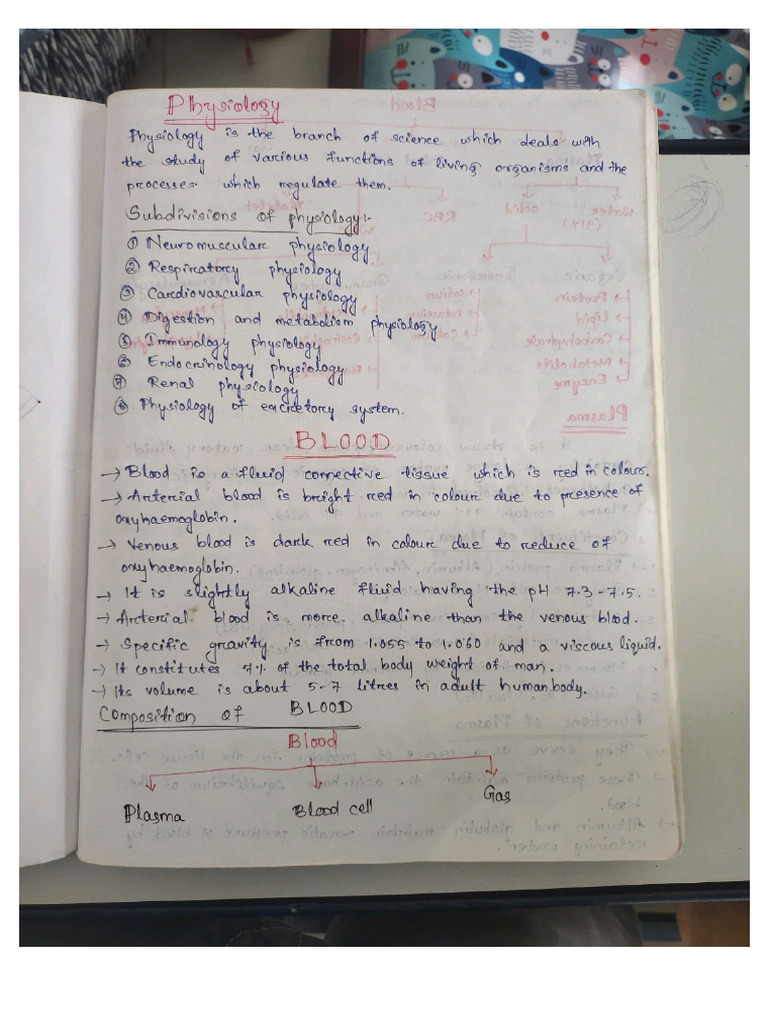 Physiology
Physiology is the branch of science which deals with
the study of various functions of living organisms and the
processes which regulate them.
Subdivisions of physiology:-
① Neuromuscular physiology
② Respiratory physiology
③ Cardiovascular physiology
④ Digestion and metabolism physiology
⑤ Immunology physiology
⑥ Endocrinology physiology
⑦ Renal physiology
⑧ Physiology of excretory system.
BLOOD
→ Blood is a fluid connective tissue which is red in colour.
→ Arterial blood is bright red in colour due to presence of
oxyhaemoglobin.
→ Venous blood is dark red in colour due to reduce of
oxyhaemoglobin.
→ It is slightly alkaline fluid having the pH 7.3-7.5.
→ Arterial blood is more alkaline than the venous blood.
→ Specific gravity is from 1.055 to 1.060 and a viscous liquid.
→ It constitutes 7% of the total body weight of man.
→ Its volume is about 5-7 litres in adult human body.
Composition of BLOOD
Blood
Plasma Blood cell Gas